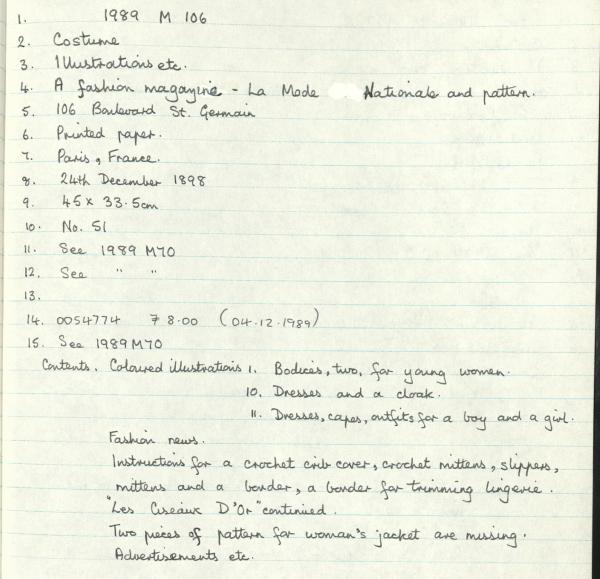 1. 1989 M 106
2. Costume
3. Illustrations etc.
4. A fashion magazine - La Mode Nationale and pattern.
5. 106 Boulevard St. Germain
6. Printed paper.
7. Paris, France.
8. 24th December 1898
9. 45 x 33.5cm
10. No. 51
11. See 1989 M70
12. See " "
13.
14. 0054774 7 8.00 (04.12.1989)
15. See 1989 M70
Contents. Coloured illustrations 1. Bodices, two, for young women.
10. Dresses and a cloak.
11. Dresses, capes, outfits for a boy and a girl.
Fashion news.
Instructions for a crochet crib cover, crochet mittens, slippers,
mittens and a border, a border for trimming lingerie.
"Les Ciseaux D'Or" continued.
Two pieces of pattern for woman's jacket are missing.
Advertisements etc.